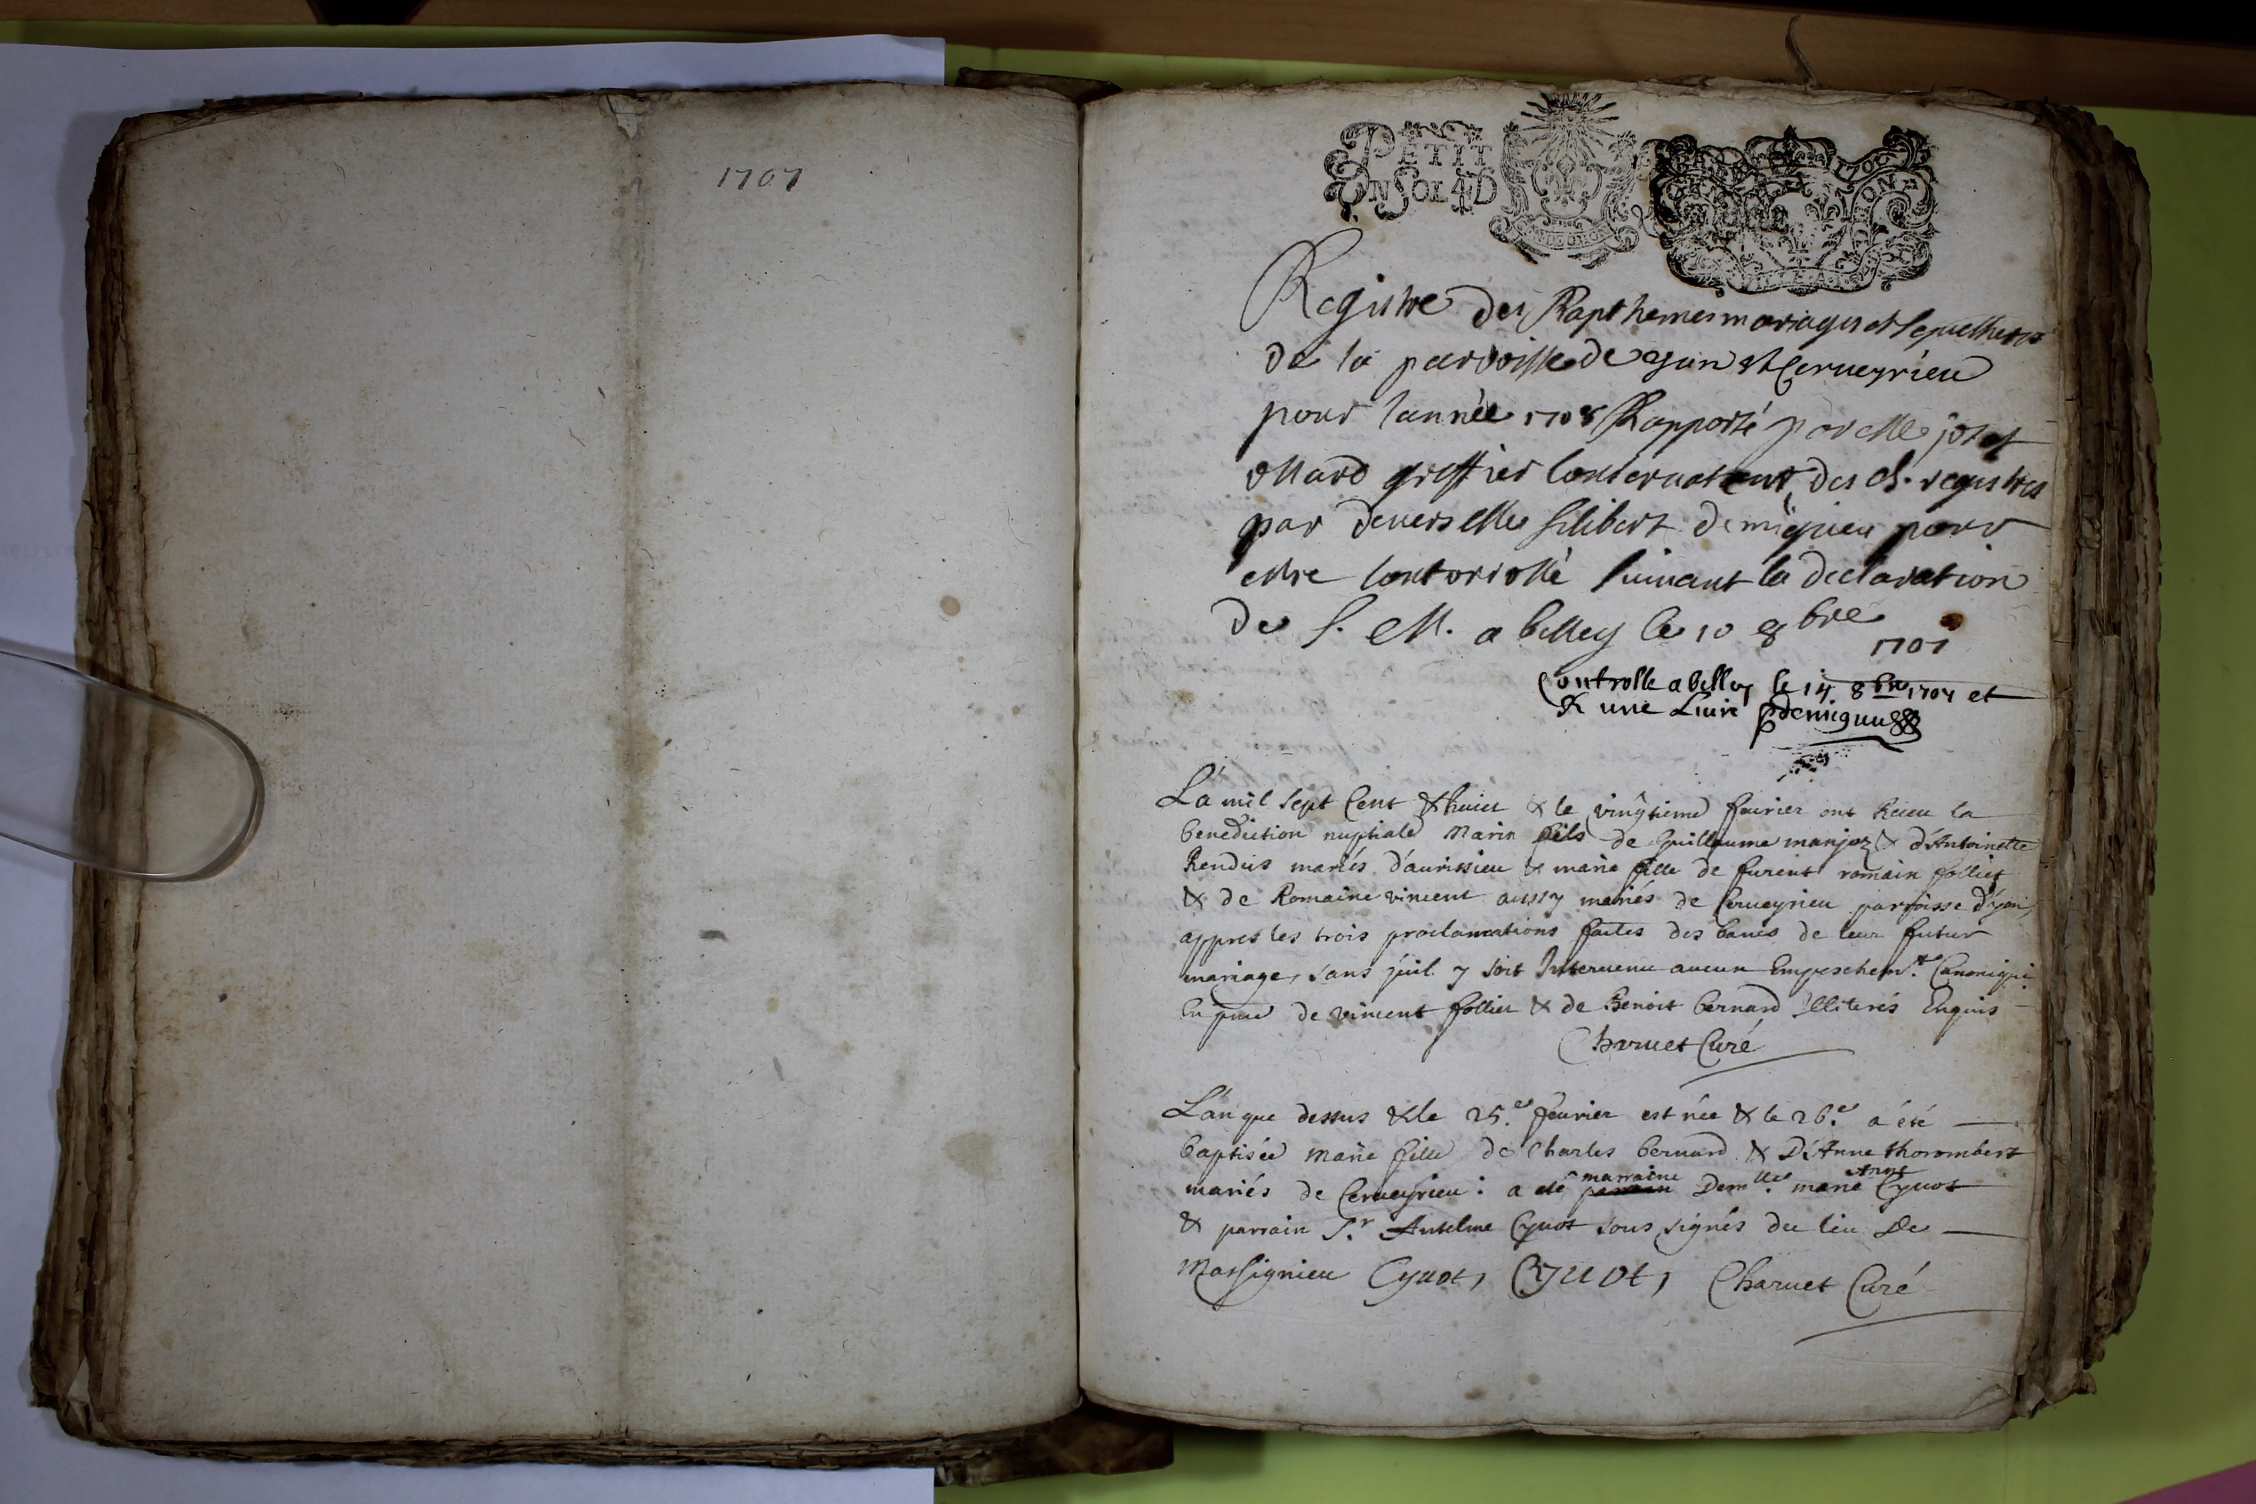 1707
PETIT
UN SOL 4 D
Registre des Bapthemes mariages et sepultures
de la parroisse de yon et Cerveyrieu
pour lannée 1708 Rapporté par Me josef
Mard greffier Conservateur des d. registres
par devers Me filibert demigieu pour
estre Controrollé suivant la declaration
de S. M. a belley le 10 8bre
1707
Controlle a belley le 14 8bre 1707 et
R une Livre pdemigieu
L'á mil sept Cent & huict & le vingtieme fevrier ont Receu la
benediction nuptiale Marin fils de Guillaume manjoz & d'Antoinette
Rendus mariés d'aurissieu & marie fille de furent romain folliet
& de Romaine vincent aussy mariés de Cerveyrieu parroisse d'yon,
appres les trois proclamations faites des bancs de leur futur
mariage, sans q'uil y soit Intervenu aucun Empeschemt. Canonique
En pnce de vincent folliet & de Benoit bernard Illiterés Enquis
Charvet Curé
L'án que dessus & le 25.e février est née & le 26.e a été
baptisée marie fille de Charles bernard & D'Anne thorombert
mariés de Cerveyrieu : a eté marraine Demlle. marie Anne Cyvot
& parrain Sr. Antelme Cyvot sous signés du lieu De
Massignieu Cyvot, CYUOt, Charvet Curé